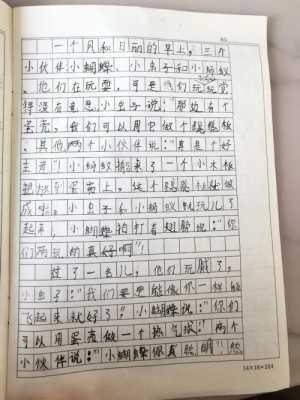 一个风和日丽的早上，三个
小伙伴小蝴蝶、小虫子和小蚂蚁
。他们在玩耍，可是他们玩玩觉
得没有意思，小虫子说："那边有个
蛋壳，我们可以用它做个跷跷板
。其他两个小伙伴说："真是个好
主意"小蚂蚁搬来了一个小木板
把放到蛋壳上。这个跷跷板就做
成啦。小虫子和小蚂蚁就玩儿了
起来，小蝴蝶拍打着翅膀说："你
们两玩的真好啊"！
过了一会儿，他们玩腻了，
小虫子："我们要是能像你一样能
飞起来就好了"小蝴蝶说："你们
可以用蛋壳做一个热气球"两个
小伙伴说："小蝴蝶你真聪明"，然
14×16=224